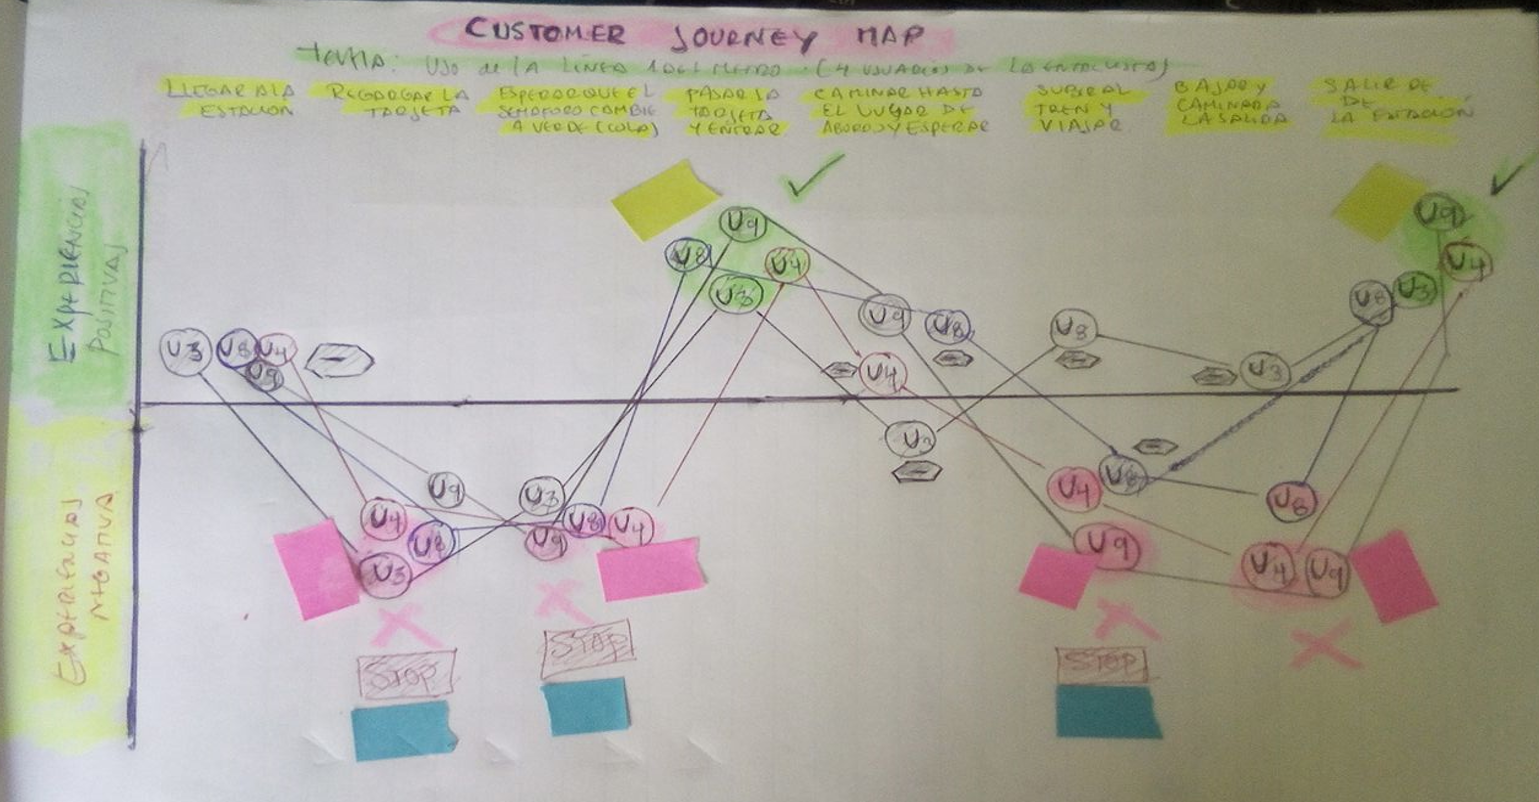 CUSTOMER JOURNEY MAP
TEMA: USO de LA LINEA 1 DEL METRO (4 USUARIOS DE LA ENCUESTA)
LLEGAR A LA
ESTACION
RECARGAR LA
TARJETA
ESPERAR QUE EL
SEMAFORO CAMBIE
A VERDE (COLA)
PASAR LA
TARJETA
Y ENTRAR
CAMINAR HASTA
EL LUGAR DE
ABORDO Y ESPERAR
SUBIR AL
TREN Y
VIAJAR
BAJAR Y
CAMINAR A
LA SALIDA
SALIR DE
DE
LA ESTACIÓN
EXPERIENCIAS
POSITIVAS
EXPERIENCIAS
NEGATIVA
U9
U9
U8
U4
U4
U3
U8
U3
U9
U8
U8
U3
U8
U4
U9
U4
U3
U3
U9
U8
U4
U3
U4
U8
U8
U9
U8
U4
U9
U4
U9
U3
STOP
STOP
STOP